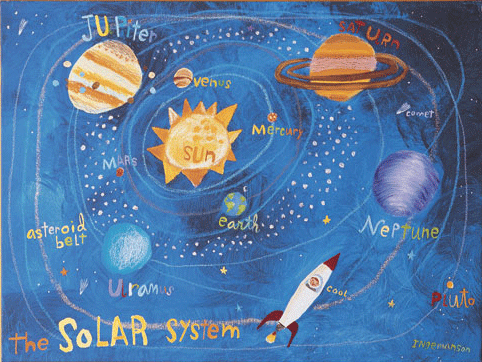 JUPiter
SATURn
venus
comet
Mercury
sun
MARS
earth
Neptune
asteroid
belt
Uranus
cool
Pluto
the SoLAR system